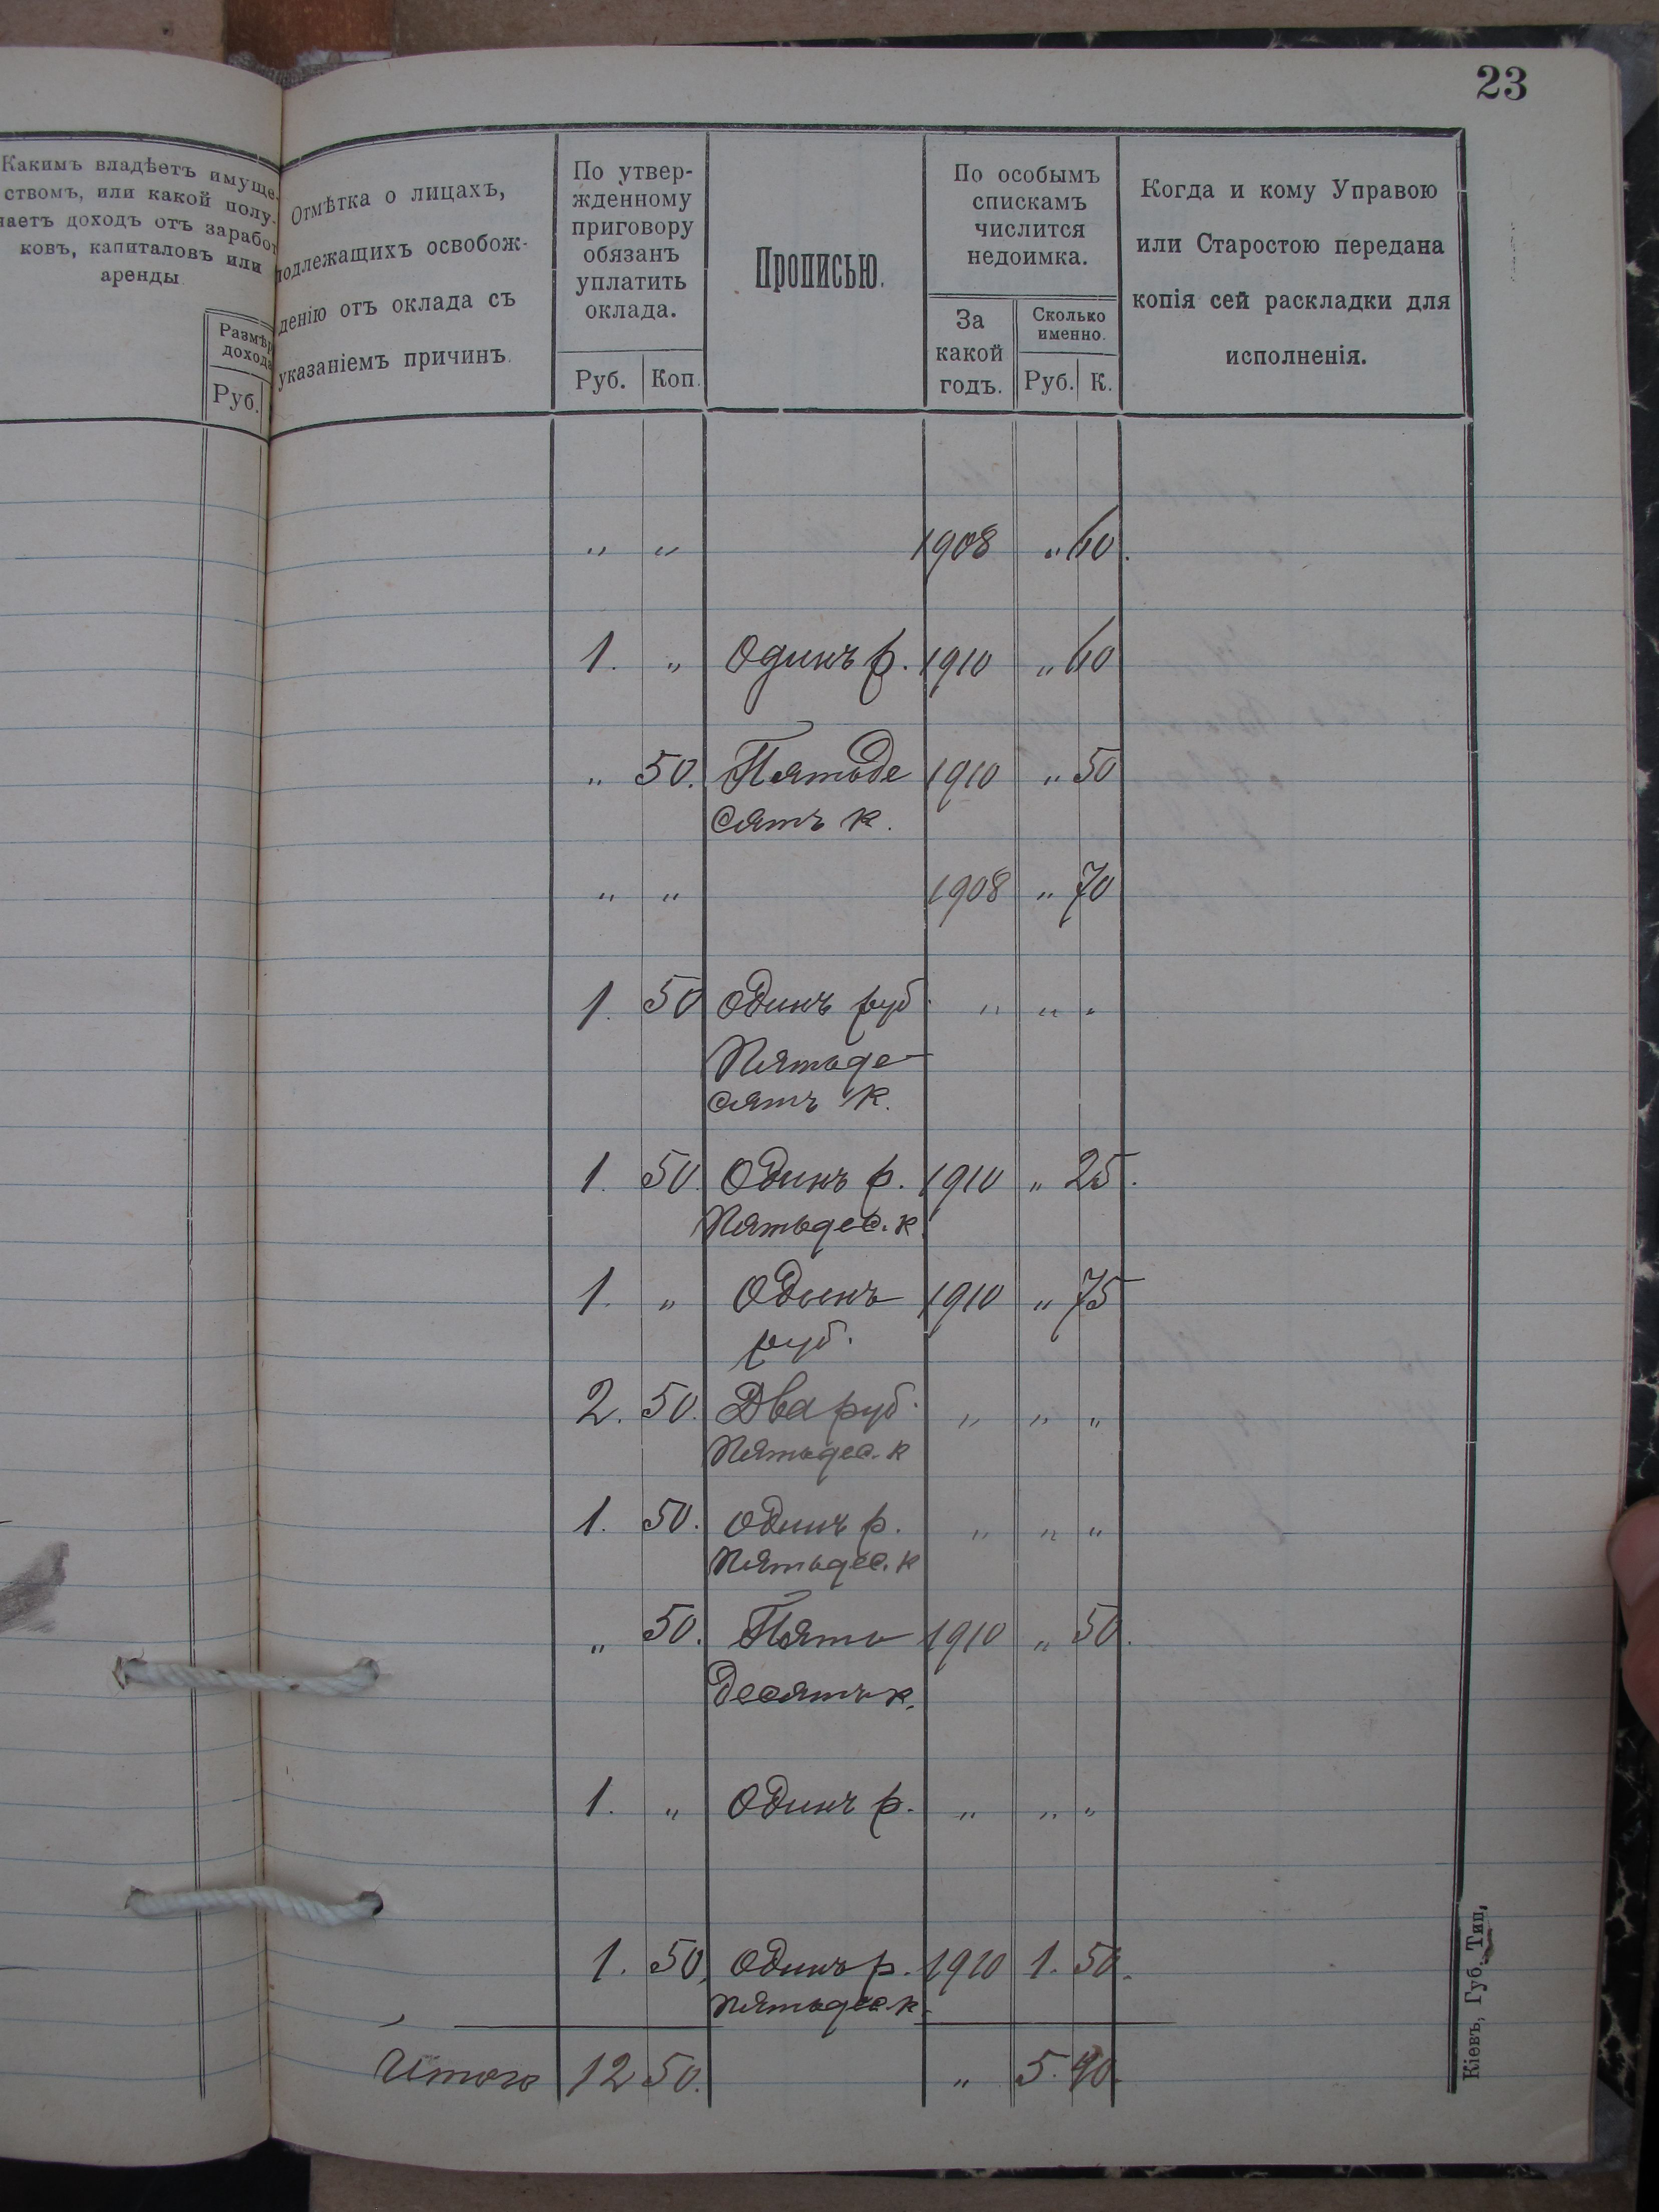 23
Какимъ владѣетъ имуще-
ствомъ, или какой полу-
чаетъ доходъ отъ заработ
ковъ, капиталовъ или
аренды
Размѣр
дохода
Руб.
Отмѣтка о лицахъ,
подлежащихъ освобож-
денію отъ оклада съ
указаніемъ причинъ.
По утвер-
жденному
приговору
обязанъ
уплатить
оклада.
Руб. Коп.
Прописью.
По особымъ
спискамъ
числится
недоимка.
За
какой
годъ.
Сколько
именно.
Руб. К.
Когда и кому Управою
или Старостою передана
копія сей раскладки для
исполненія.
„ „ 1908 „ 60.
1. „ Одинъ р. 1910 „ 60
„ 50. Пятьде 1910 „ 50
сятъ к.
„ „ 1908 „ 70
1. 50 Одинъ руб. „ „ „
Пятьде-
сятъ к.
1. 50. Одинъ р. 1910 „ 25.
Пятьдес. к.
1. „ Одинъ 1910 „ 75
руб.
2. 50. Два руб. „ „ „
Пятьдес. к
1. 50. Одинъ р. „ „ „
Пятьдес. к
„ 50. Пять 1910 „ 50.
десятъ к.
1. „ Одинъ р. „ „ „
1. 50. Одинъ р. 1910 1. 50.
Пятьдес. к.
Итого 12 50. „ 5. 90.
Кіевъ, Губ. Тип,